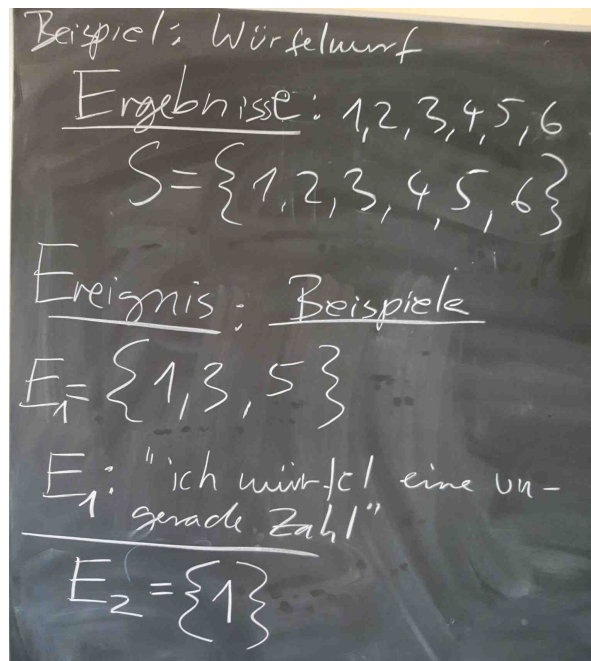 Beispiel: Würfelwurf
Ergebnisse: 1,2,3,4,5,6
S={1,2,3,4,5,6}
Ereignis: Beispiele
E₁={1,3,5}
E₁: "ich würfel eine un-
gerade Zahl"
E₂={1}